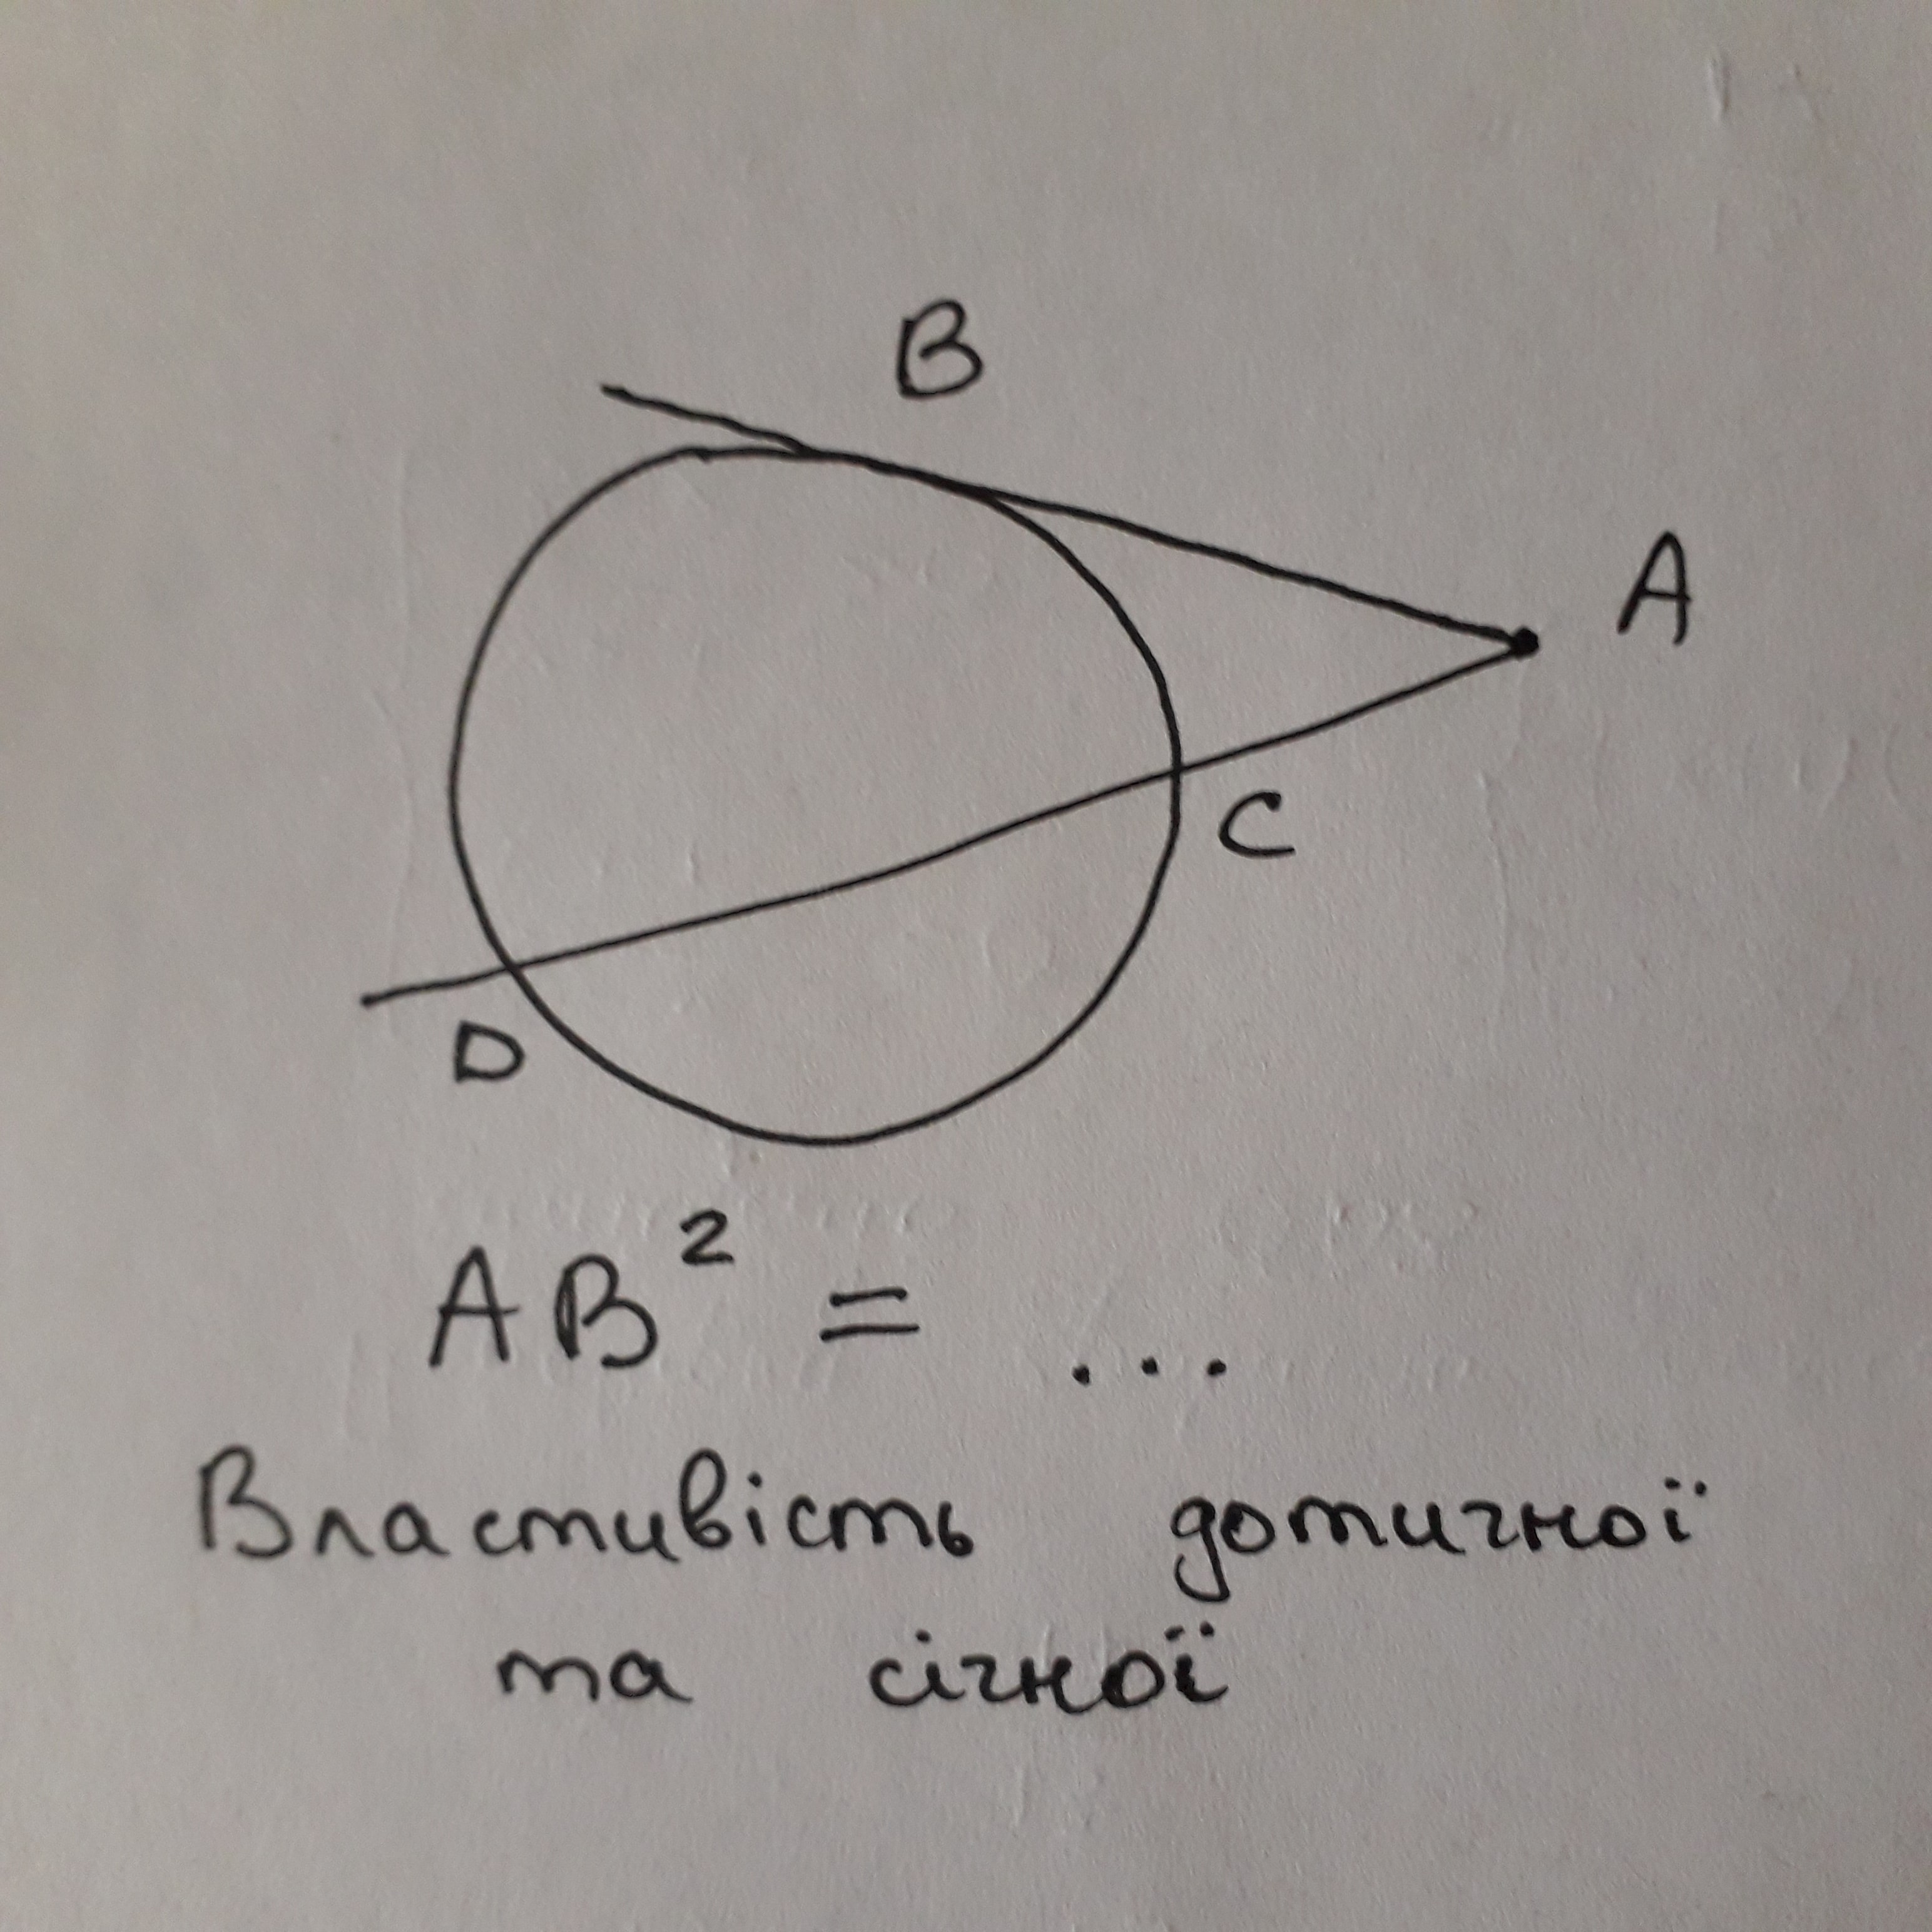 B
A
C
D
AB² = ...
Властивість дотичної
та січної